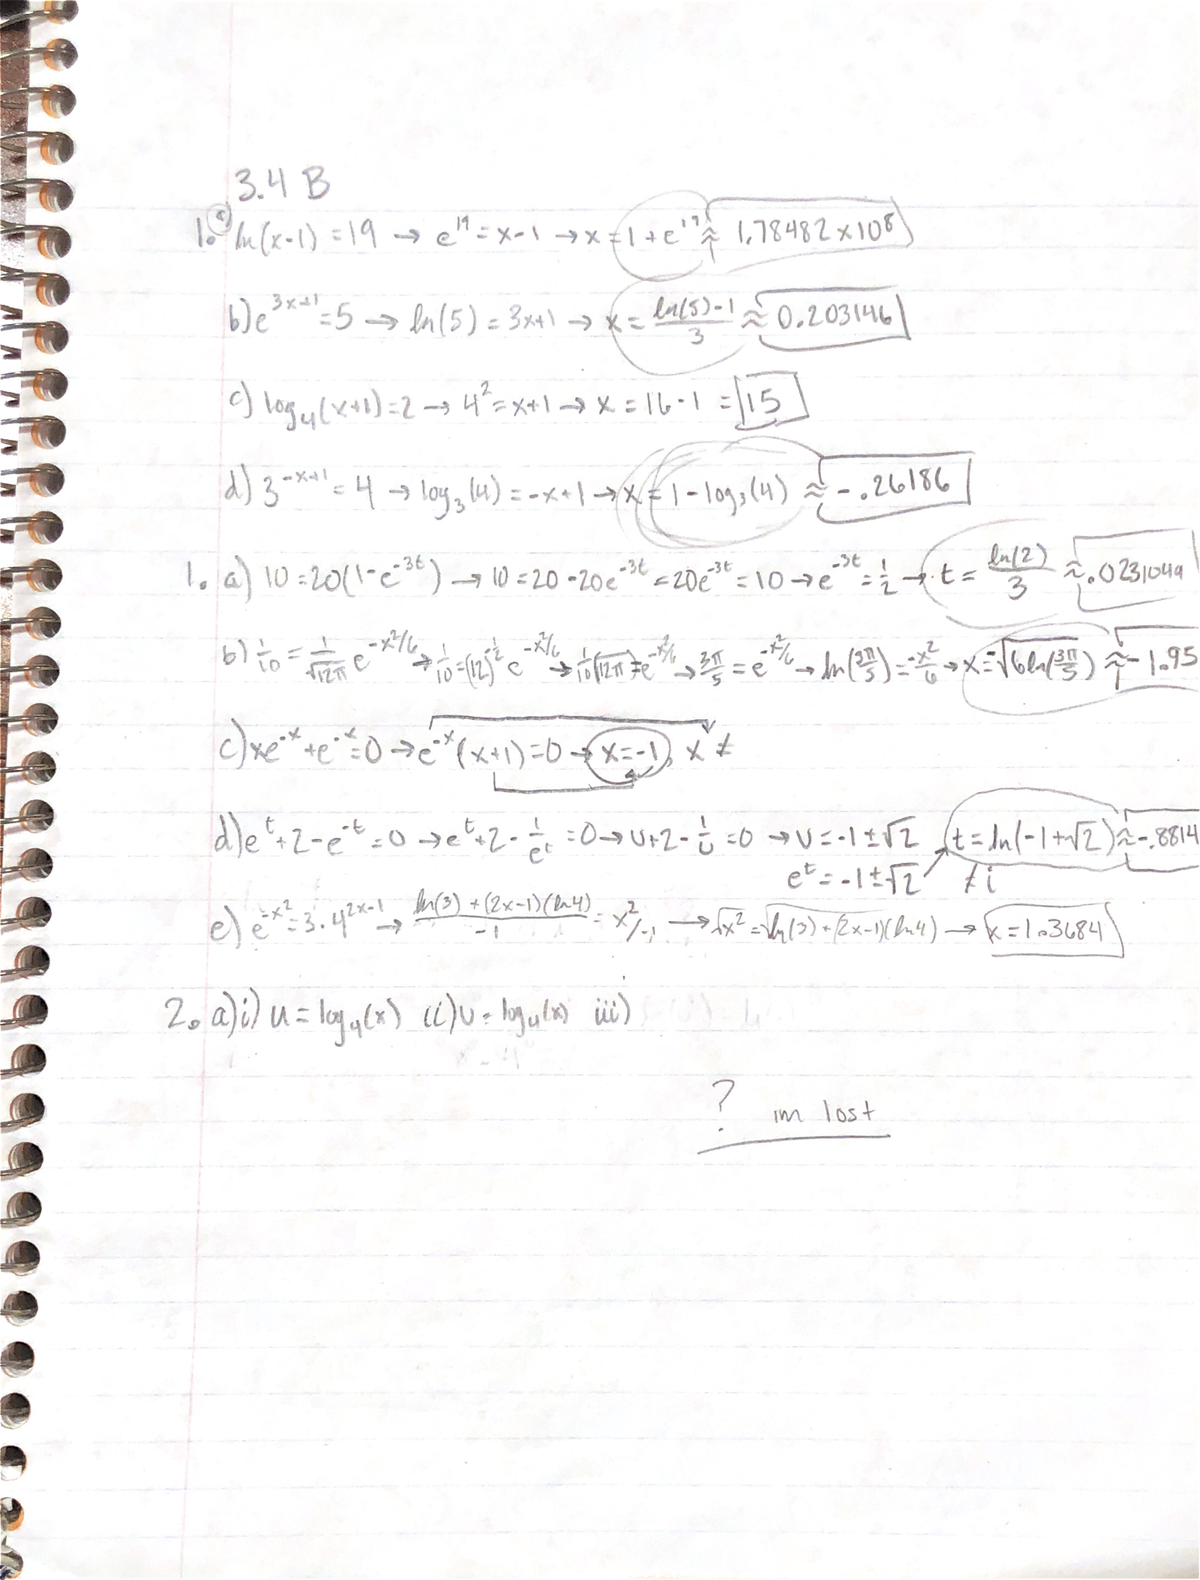 3.4 B
1. a) ln(x-1) = 19 → e^19 = x-1 → x = 1+e^19 ≈ 1.78482×10^8
b) e^3x+1 = 5 → ln(5) = 3x+1 → x = ln(5)-1/3 ≈ 0.203146
c) log4(x+1) = 2 → 4^2 = x+1 → x = 16-1 = 15
d) 3^-x+1 = 4 → log3(4) = -x+1 → x = 1-log3(4) ≈ -.26186
1. a) 10 = 20(1-e^-3t) → 10 = 20-20e^-3t = 20e^-3t = 10 → e^-3t = 1/2 → t = ln(2)/3 ≈ .0231049
b) 1/10 = 1/√12π e^-x²/6 → 1/10 = (12)^-1/2 e^-x²/6 → 1/10√12π = e^-x²/6 → 3π/5 = e^-x²/6 → ln(3π/5) = -x²/6 → x = -√6ln(3π/5) ≈ -1.95
c) xe^-x + e^-x = 0 → e^-x(x+1) = 0 → x = -1, x ≠
d) e^t + 2 - e^-t = 0 → e^t + 2 - 1/e^t = 0 → u+2-1/u = 0 → u = -1±√2 t = ln(-1+√2) ≈ -.8814
e^t = -1±√2 ≠ i
e) e^-x² = 3·4^2x-1 → ln(3)+(2x-1)(ln4)/-1 = x²/-1 → √x² = √ln(3)+(2x-1)(ln4) → x = 1.3684
2. a) i) u = log4(x) ii) u = log4(x) iii)
? im lost